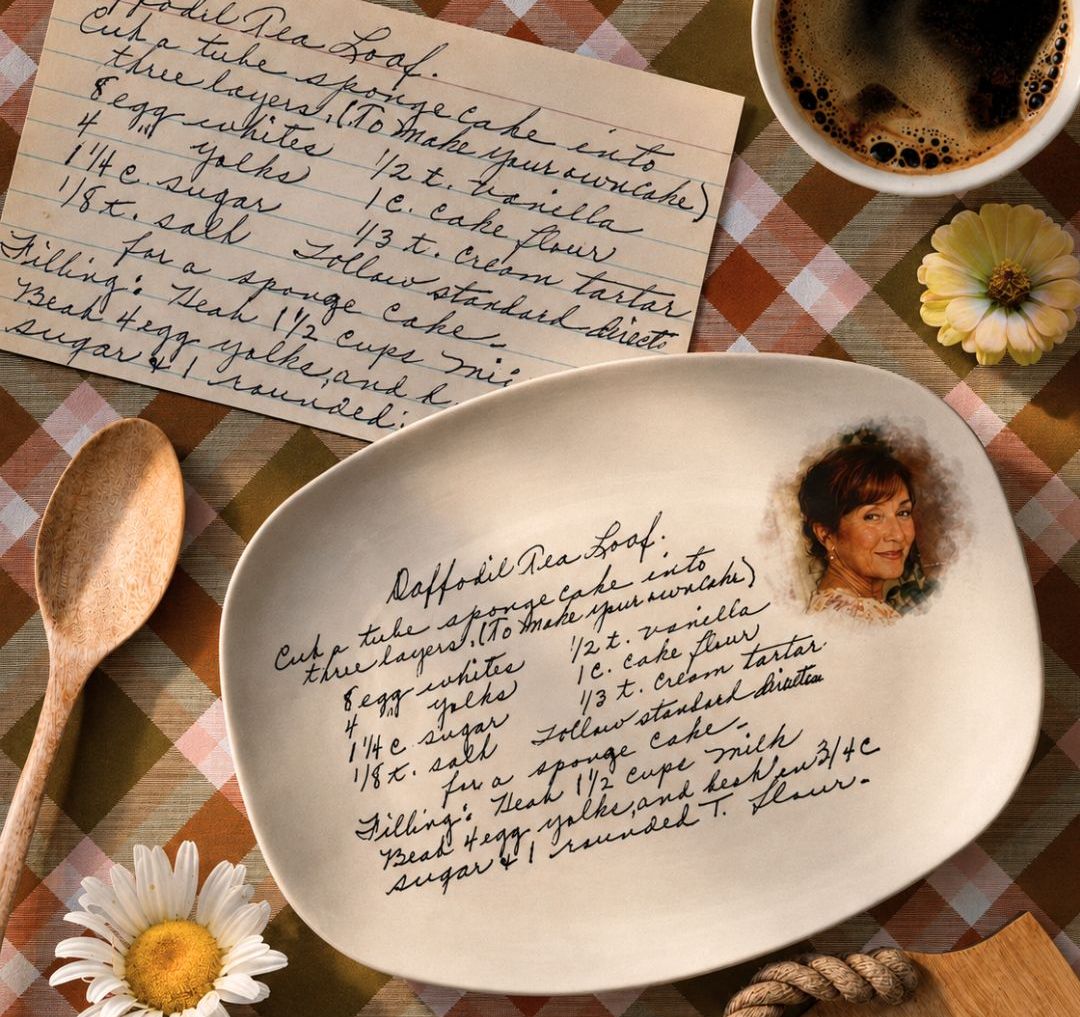 ffodil Tea Loaf.
Cut a tube sponge cake into
three layers. (To make your own cake)
8 egg whites 1/2 t. vanilla
4 "" yolks 1 c. cake flour
1 1/4 c. sugar 1/3 t. cream tartar
1/8 t. salt Follow standard directo
for a sponge cake-
Filling: Heat 1 1/2 cups mi
Beat 4 egg yolks, and b
sugar & 1 rounded
Daffodil Tea Loaf.
Cut a tube sponge cake into
three layers. (To make your own cake)
8 egg whites 1/2 t. vanilla
4 "" yolks 1 c. cake flour
1 1/4 c sugar 1/3 t. cream tartar
1/8 t. salt Follow standard
for a sponge cake-
Filling: Heat 1 1/2 cups milk
Beat 4 egg yolks, and beat in 3/4 c
sugar & 1 rounded T. flour-